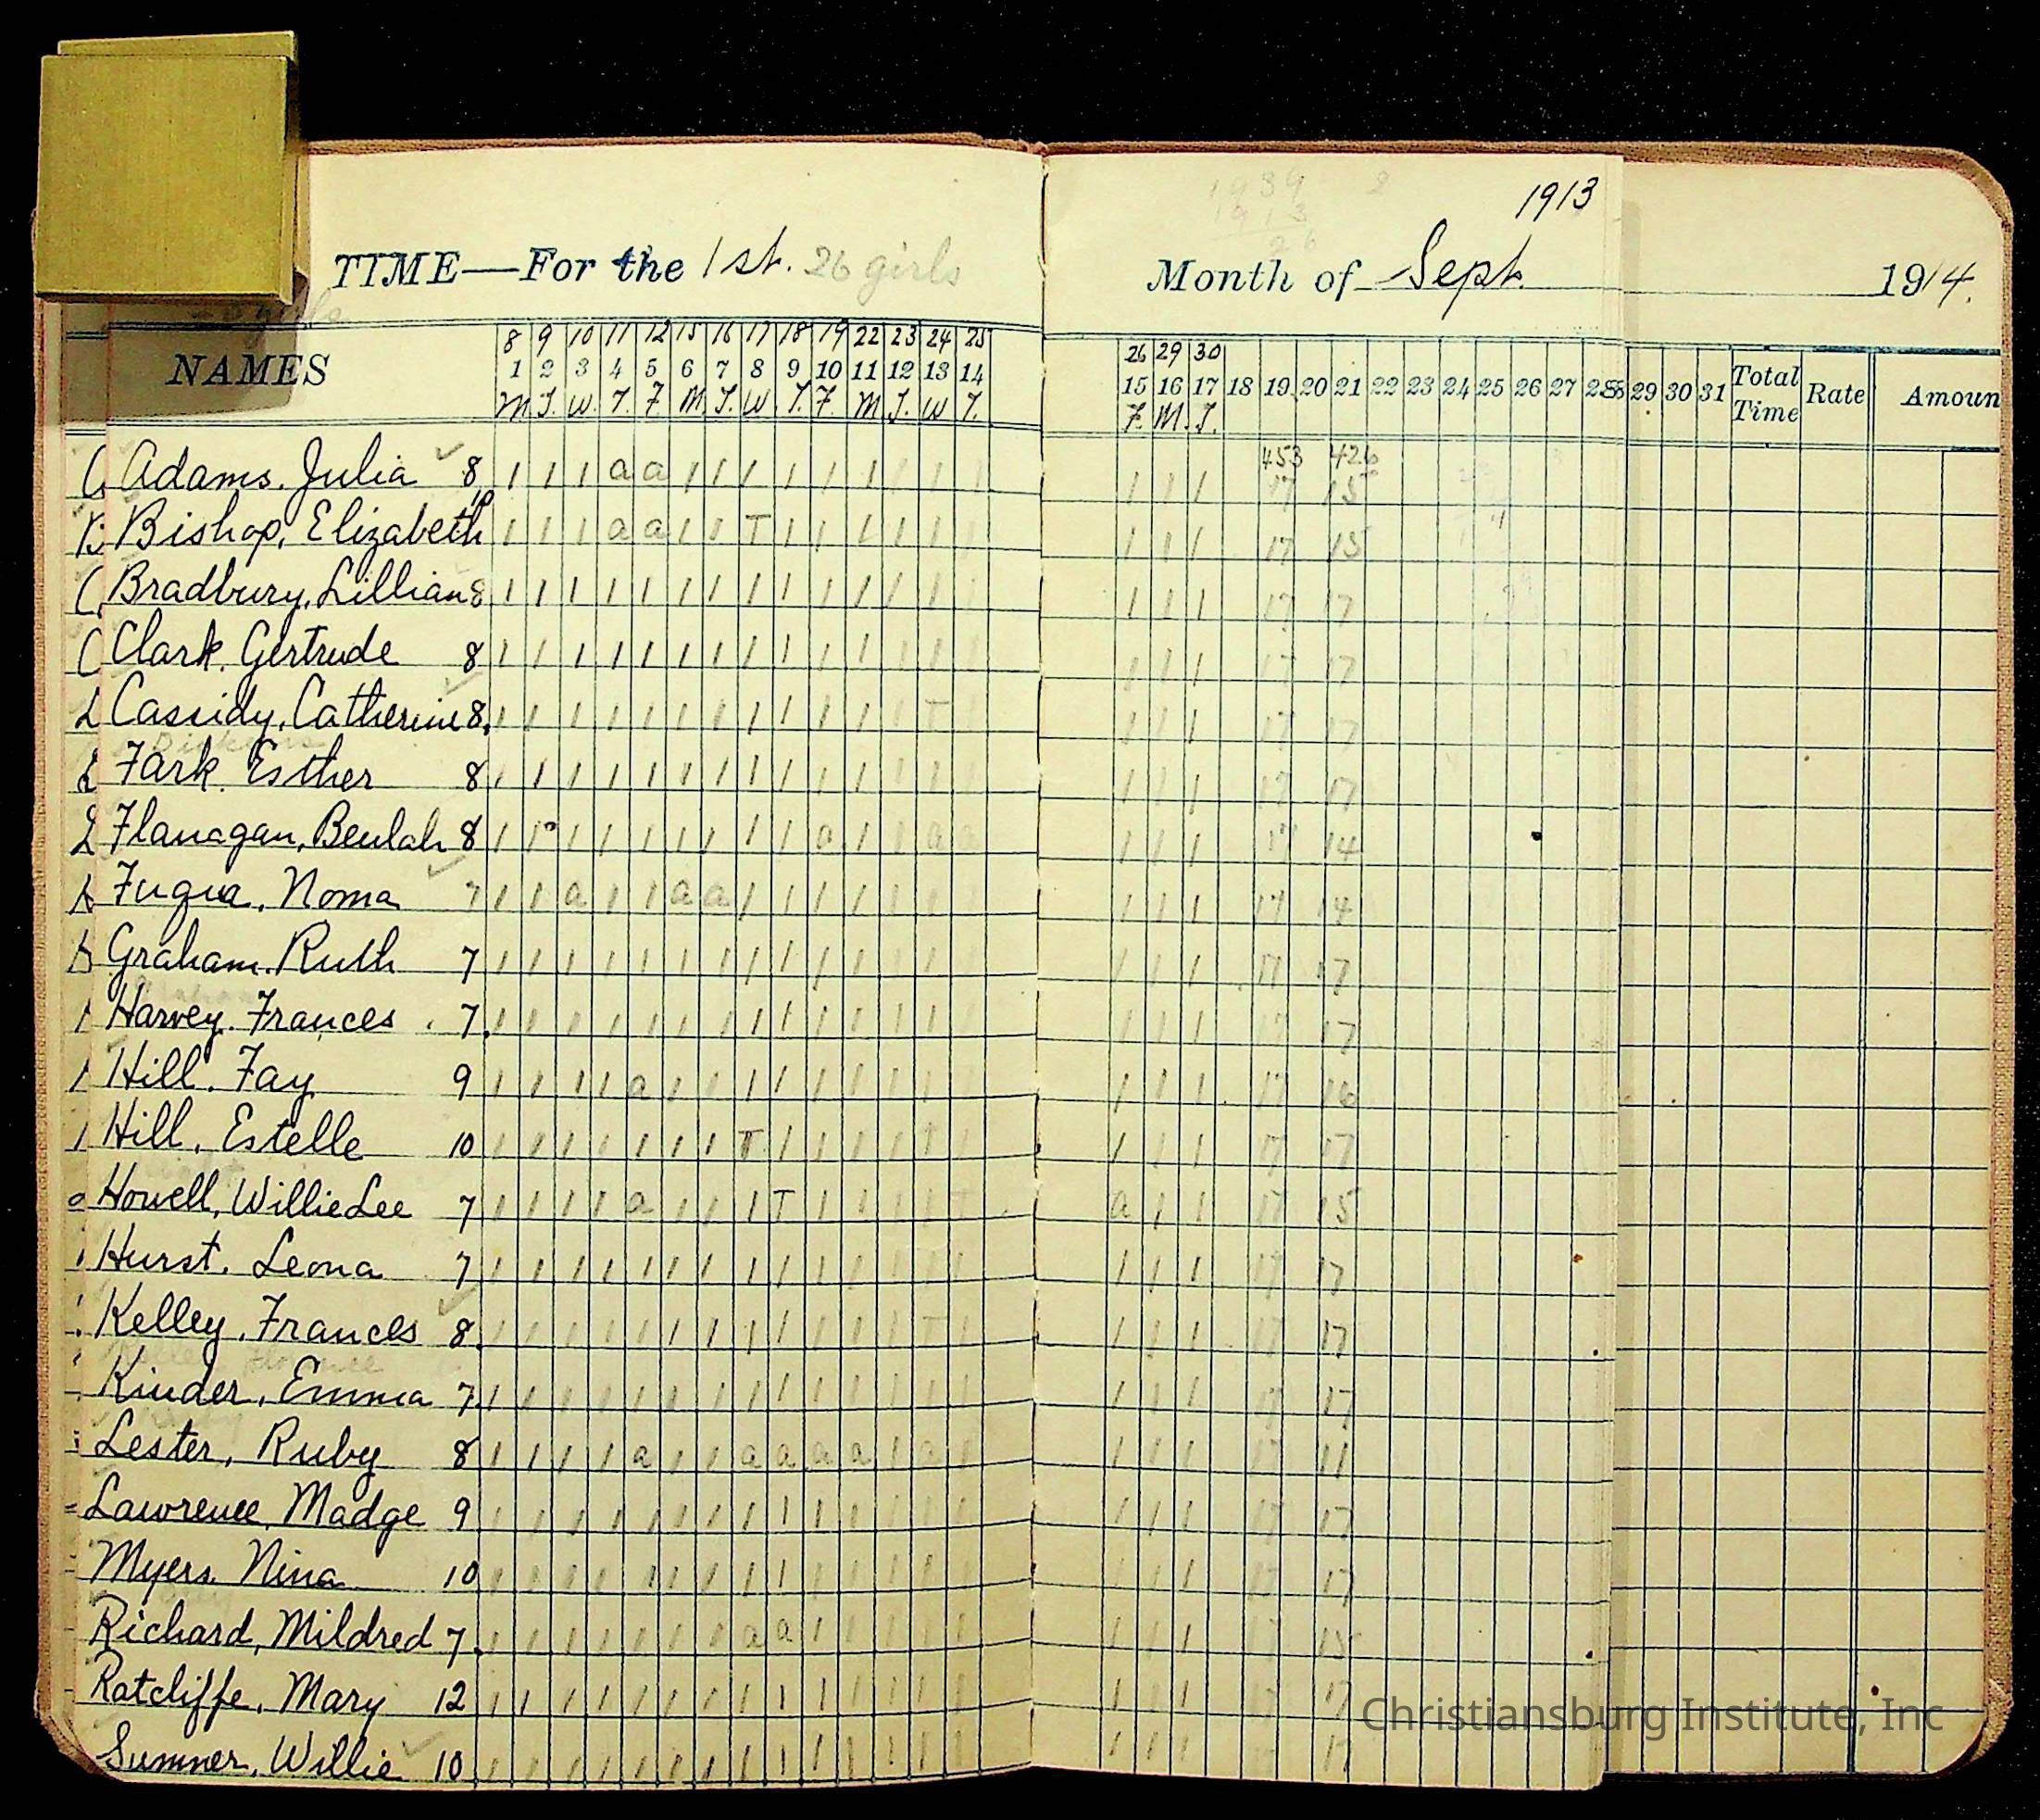 1913
TIME—For the 1st. 26 girls Month of Sept. 1914.
8 9 10 11 12 15 16 17 18 19 22 23 24 25 26 29 30
NAMES 1 2 3 4 5 6 7 8 9 10 11 12 13 14 15 16 17 18 19 20 21 22 23 24 25 26 27 28 29 30 31 Total Time Rate Amoun
M. T. W. T. F. M. T. W. T. F. M T. W T. F. M. T.
453 426
Adams, Julia 8 1 1 1 a a 1 1 1 1 1 1 1 1 1 1 1 1 17 15
Bishop, Elizabeth 10 1 1 1 a a 1 1 T 1 1 1 1 1 1 1 1 1 17 15
Bradbury, Lillian 8 1 1 1 1 1 1 1 1 1 1 1 1 1 1 1 1 1 17 17
Clark, Gertrude 8 1 1 1 1 1 1 1 1 1 1 1 1 1 1 1 1 1 17 17
Cassidy, Catherine 8. 1 1 1 1 1 1 1 1 1 1 1 1 T 1 1 1 1 17 17
Fark, Esther 8 1 1 1 1 1 1 1 1 1 1 1 1 1 1 1 1 1 17 17
Flanagan, Beulah 8 1 1 1 1 1 1 1 1 1 a 1 1 a a 1 1 1 17 14
Fuqua, Noma 7 1 1 a 1 1 a a 1 1 1 1 1 1 1 1 1 1 17 14
Graham, Ruth 7 1 1 1 1 1 1 1 1 1 1 1 1 1 1 1 1 1 17 17
Harvey, Frances 7. 1 1 1 1 1 1 1 1 1 1 1 1 1 1 1 1 1 17 17
Hill, Fay 9 1 1 1 1 a 1 1 1 1 1 1 1 1 1 1 1 1 17 16
Hill, Estelle 10 1 1 1 1 1 1 1 T 1 1 1 1 T 1 1 1 1 17 17
Howell, Willie Lee 7 1 1 1 1 a 1 1 1 T 1 1 1 1 T a 1 1 17 15
Hurst, Leona 7 1 1 1 1 1 1 1 1 1 1 1 1 1 1 1 1 1 17 17
Kelley, Frances 8. 1 1 1 1 1 1 1 1 1 1 1 1 T 1 1 1 1 17 17
Kinder, Emma 7. 1 1 1 1 1 1 1 1 1 1 1 1 1 1 1 1 1 17 17
Lester, Ruby 8 1 1 1 1 a 1 1 a a a a 1 a 1 1 1 1 17 11
Lawrence, Madge 9 1 1 1 1 1 1 1 1 1 1 1 1 1 1 1 1 1 17 17
Myers, Nina 10 1 1 1 1 1 1 1 1 1 1 1 1 1 1 1 1 1 17 17
Richard, Mildred 7. 1 1 1 1 1 1 1 a a 1 1 1 1 1 1 1 1 17 15
Ratcliffe, Mary 12 1 1 1 1 1 1 1 1 1 1 1 1 1 1 1 1 1 17 17
Sumner, Willie 10 1 1 1 1 1 1 1 1 1 1 1 1 1 1 1 1 1 17 17
Christiansburg Institute, Inc